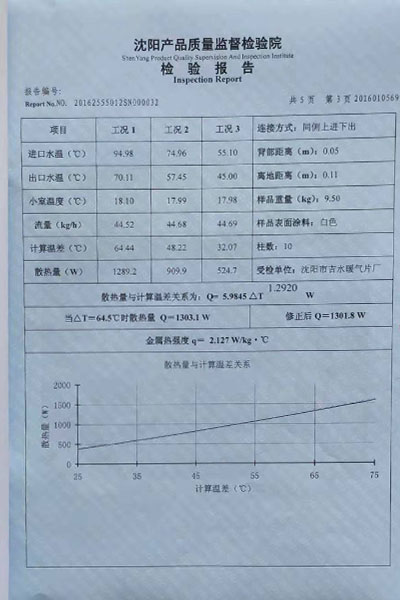 沈阳产品质量监督检验院
Shen Yang Product Quality Supervision And Inspection Institute
检 验 报 告
Inspection Report
报告编号:
Report No.NO. 20162555012SN000032
共 5 页 第 3 页 2016010569
项目 工况 1 工况 2 工况 3 连接方式: 同侧上进下出
进口水温 (℃) 94.98 74.96 55.10 背部距离 (m): 0.05
出口水温 (℃) 70.11 57.45 45.00 离地距离 (m): 0.11
小室温度 (℃) 18.10 17.99 17.98 样品重量 (kg): 9.50
流量 (kg/h) 44.52 44.68 44.69 样品表面涂料: 白色
计算温差 (℃) 64.44 48.22 32.07 柱数: 10
散热量 (W) 1289.2 909.9 524.7 受检单位: 沈阳市吉水暖气片厂
散热量与计算温差关系为: Q= 5.9845 △T 1.2920 W
当△T=64.5℃时散热量 Q=1303.1 W 修正后 Q=1301.8 W
金属热强度 q= 2.127 W/kg·℃
散热量与计算温差关系
散热量 (W)
2000
1500
1000
500
0
25 35 45 55 65 75
计算温差 (℃)